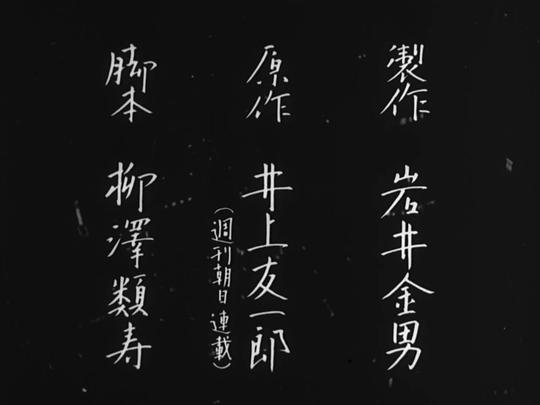 製作 岩井金男
原作 井上友一郎
（週刊朝日連載）
脚本 柳澤類寿